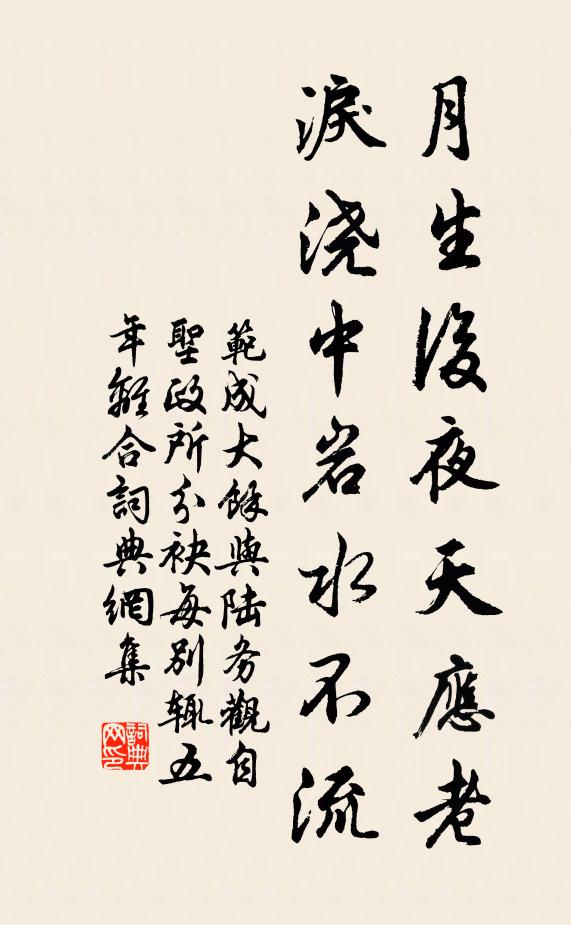 月生後夜天應老
淚浇中岩水不流
範成大餘與陆务觀自
聖政所分袂每別辄五
年離合詞典網集
詞典网印